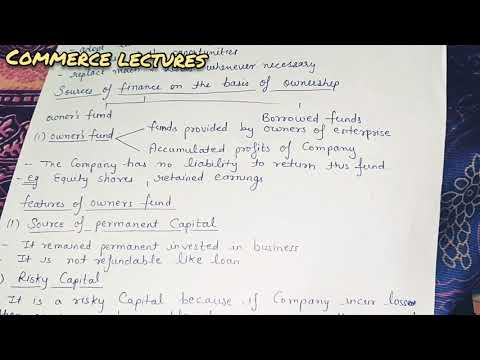 COMMERCE LECTURES
- adopt opportunities
- replace whenever necessary
Sources of finance on the basis of ownership
owner's fund Borrowed funds
(i) owner's fund funds provided by owners of enterprise
Accumulated profits of Company
- The Company has no liability to return this fund
- eg Equity shares, retained earnings
features of owners fund
(1) Source of permanent Capital
- It remained permanent invested in business
- It is not refundable like loan
) Risky Capital
It is a risky Capital because if Company incur losses